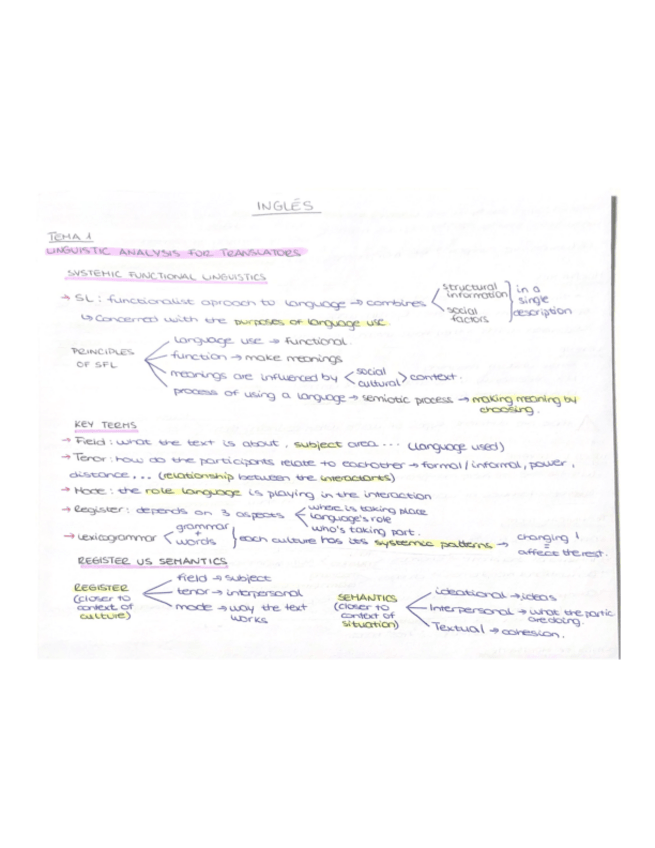 INGLÉS
TEMA 1
LINGUISTIC ANALYSIS FOR TRANSLATORS
SYSTEMIC FUNCTIONAL LINGUISTICS
→ SL: functionalist aproach to language → combines < structural information / social factors ] in a single description
↳ Concerned with the purposes of language use.
PRINCIPLES OF SFL
language use → functional.
function → make meanings
meanings are influenced by < social cultural > context.
process of using a language → semiotic process → making meaning by choosing.
KEY TERMS
→ Field: what the text is about, subject area... (language used)
→ Tenor: how do the participants relate to eachother → formal/informal, power,
distance... (relationship between the interactants)
→ Mode: the role language is playing in the interaction
→ Register: depends on 3 aspects < where is taking place
language's role
who's taking part.
→ Lexicogrammar < grammar + words } each culture has its systemic patterns → changing 1 = affect the rest.
REGISTER VS SEMANTICS
REGISTER
(closer to
context of
culture)
field → subject
tenor → interpersonal
mode → way the text
works
SEMANTICS
(closer to
context of
situation)
ideational → ideas
Interpersonal → what the partic.
are doing.
Textual → cohesion.